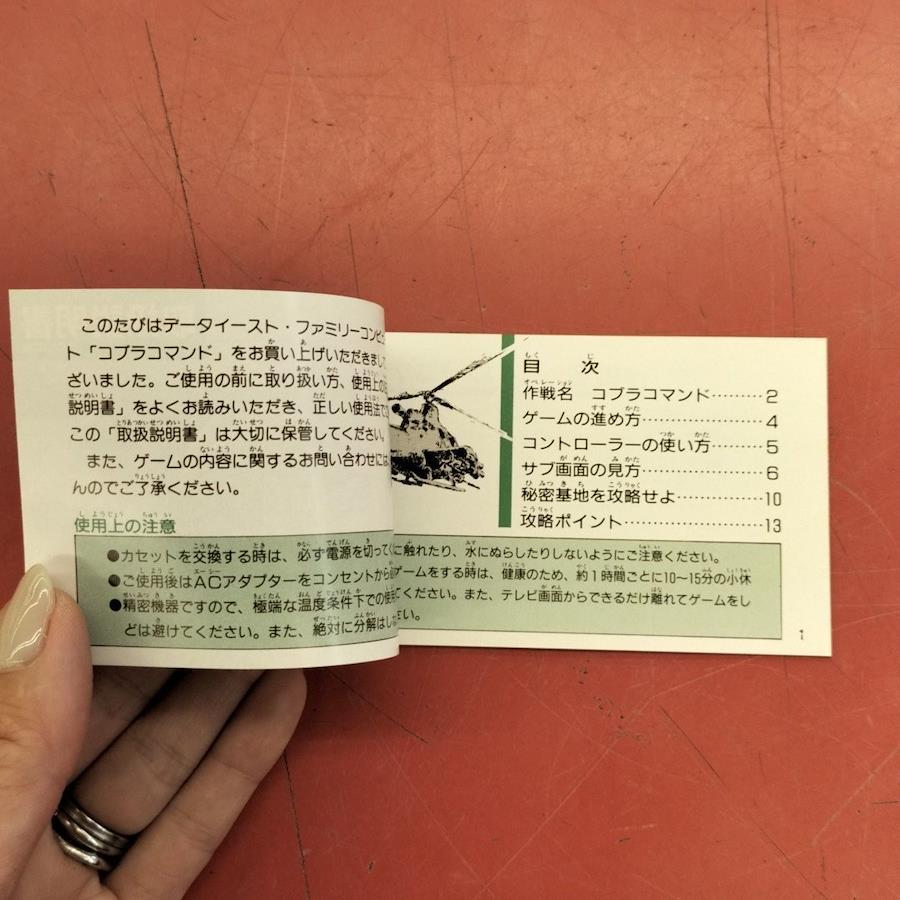 このたびはデータイースト・ファミリーコンピ
ト「コブラコマンド」をお買い上げいただきまし
ざいました。ご使用の前に取り扱い方、使用上の
説明書」をよくお読みいただき、正しい使用法で
この「取扱説明書」は大切に保管してください。
また、ゲームの内容に関するお問い合わせには
んのでご了承ください。
使用上の注意
●カセットを交換する時は、必ず電源を切って
●ご使用後はACアダプターをコンセントから
●精密機器ですので、極端な温度条件下での使用
どは避けてください。また、絶対に分解はし
目次
作戦名 コブラコマンド……………2
ゲームの進め方……………4
コントローラーの使い方……………5
サブ画面の見方……………6
秘密基地を攻略せよ……………10
攻略ポイント……………13
に触れたり、水にぬらしたりしないようにご注意ください。
ゲームをする時は、健康のため、約1時間ごとに10〜15分の小休
ください。また、テレビ画面からできるだけ離れてゲームをし
さい。
1